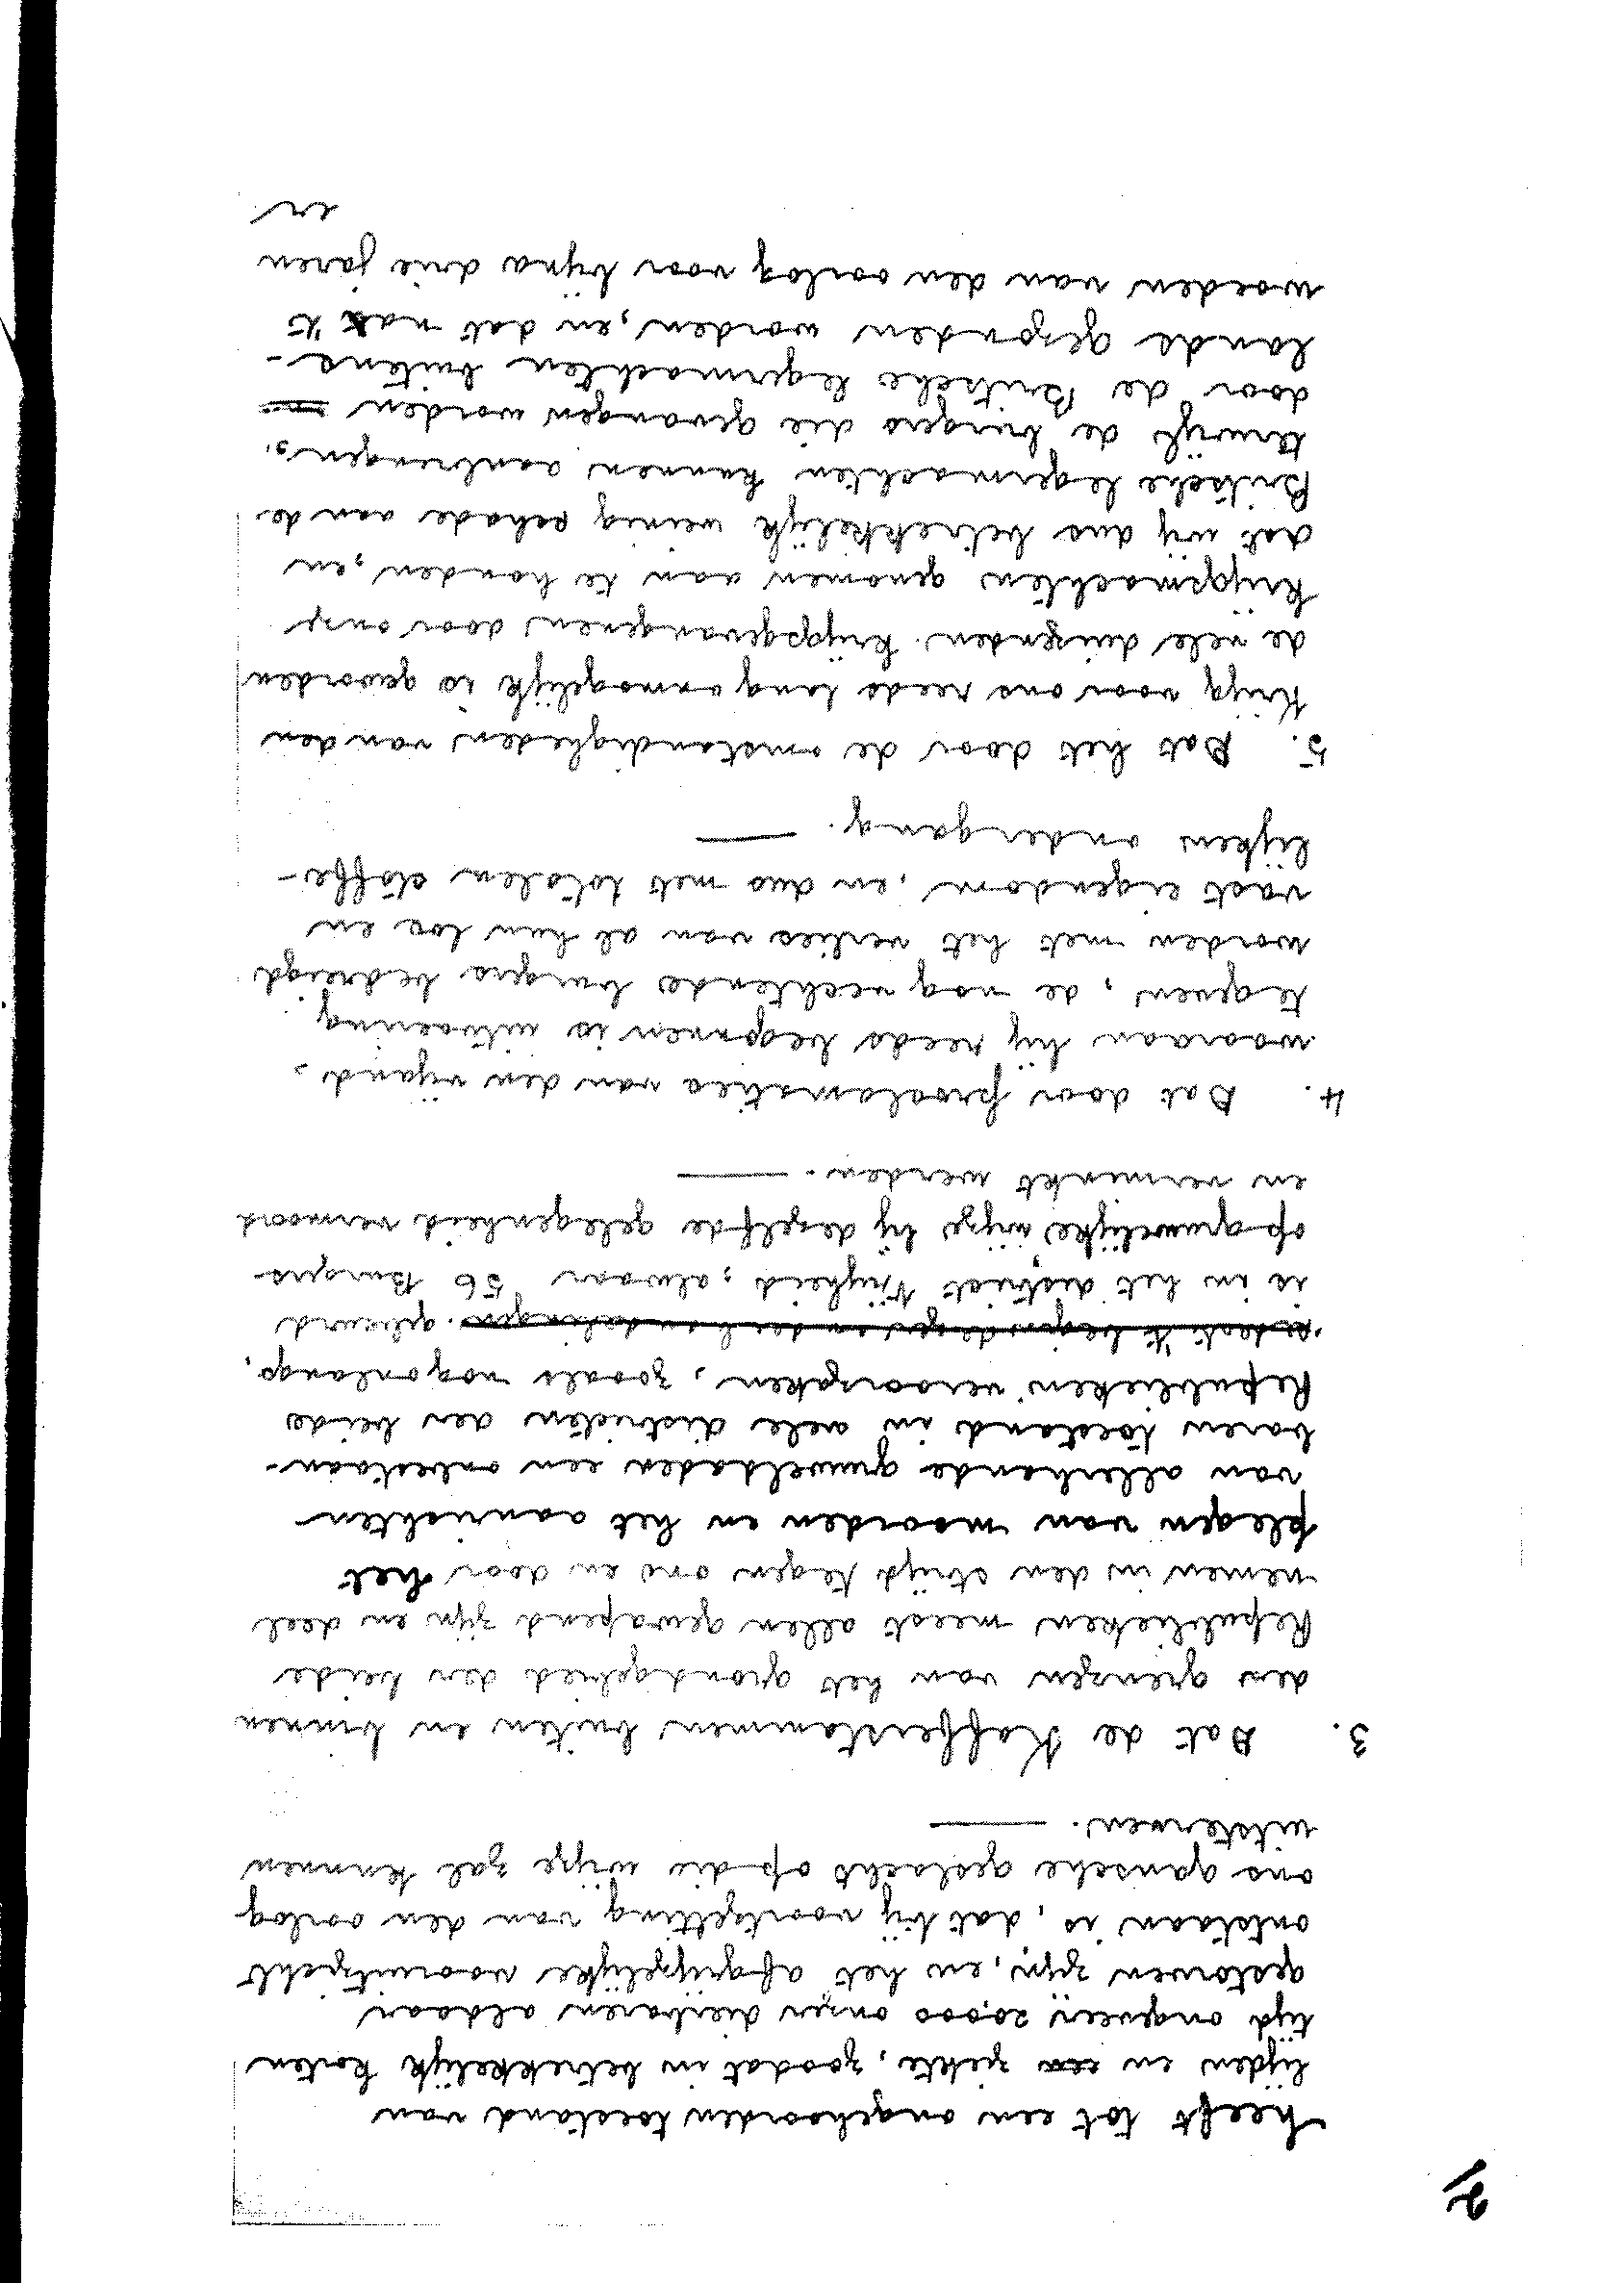 2/
heeft tot een ongehoorden toestand van
lijden en ziekte, zoodat in betrekkelijk korten
tijd ongeveer 20,000 onzer dierbaren aldaar
gestorven zijn, en het afgrijzelijke vooruitzicht
ontstaan is, dat bij voortzetting van den oorlog
ons gansche geslacht op die wijze zal kunnen
uitsterven. —
3. Dat de Kafferstammen buiten en binnen
den grenzen van het grondgebied der beide
Republieken meest allen gewapend zijn en deel
nemen in den strijd tegen ons en door het
plegen van moorden en het aanrichten
van allerhande gruweldaden een onbestaan-
baren toestand in vele districten der beide
Republieken veroorzaken, zooals nog onlangs
gebeurd
is in het district Vrijheid, alwaar 56 Burgers
op gruwelijke wijze bij dezelfde gelegenheid vermoord
en verminkt werden. —
4. Dat door proclamaties van den vijand,
waaraan hij reeds begonnen is uitvoering
te geven, de nog vechtende burgers bedreigd
worden met het verlies van al hun los en
vast eigendom, en dus met totalen stoffe-
lijken ondergang. —
5. Dat het door de omstandigheden van den
Krijg voor ons reeds lang onmogelijk is geworden
de vele duizenden krijgsgevangenen door onze
krijgsmachten genomen aan te houden, en
dat wij dus betrekkelijk weinig schade aan de
Britsche legermachten kunnen aanbrengen,
terwijl de burgers die gevangen worden
door de Britsche legermachten buitens-
lands gezonden worden, en dat na 't
woeden van den oorlog voor bijna drie jaren
er